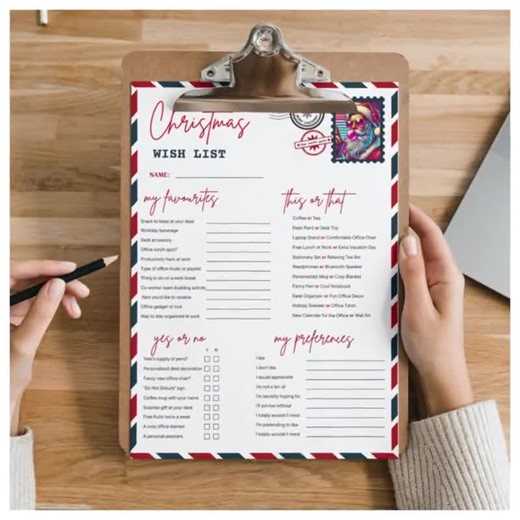 Christmas
WISH LIST
NAME:
my favourites
Snack to keep at your desk
Workday beverage
Desk accessory
Office lunch spot?
Productivity hack or work
Type of office music or playlist
Thing to do on a work break
Co-worker team-building activity
Item you'd like to receive
Office gadget or tool
Way to stay organized at work
this or that
Coffee or Tea
Desk Plant or Desk Toy
Laptop Stand or Comfortable Office Chair
Free Lunch at Work or Extra Vacation Day
Stationery Set or Relaxing Tea Set
Headphones or Bluetooth Speaker
Personalized Mug or Cozy Blanket
Fancy Pen or Cool Notebook
Desk Organizer or Fun Office Decor
Holiday Sweater or Office Tshirt
New Calendar for the Office or Wall Art
yes or no
Y N
Year's supply of pens?
Personalized desk decoration
Fancy new office chair?
"Do Not Disturb" sign
Coffee mug with your name
Surprise gift at your desk
Free fruits twice a week
A cozy office blanket
A personal assistant
my preferences
I like
I don't like
I would appreciate
I'm not a fan of
I'm secretly hoping for
I'll survive without
I totally wouldn't mind
I'm pretending to like
I totally wouldn't mind